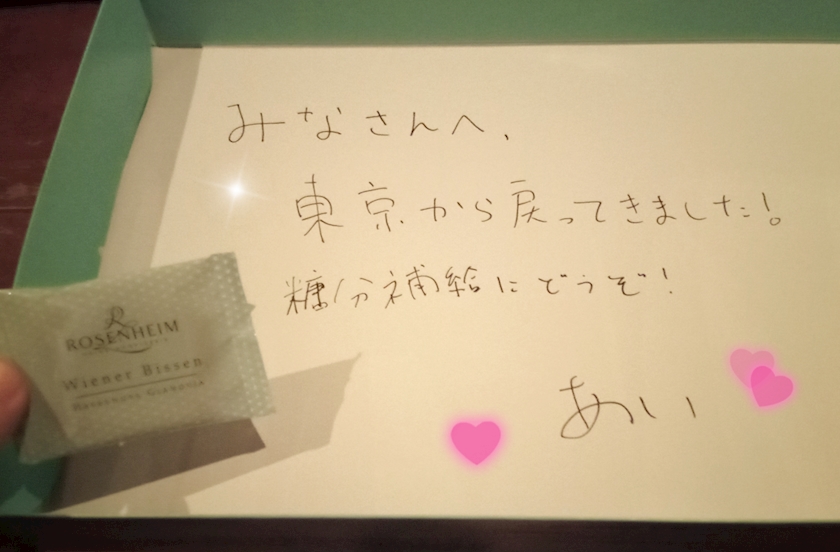 みなさんへ、
東京から戻ってきました!
糖分補給にどうぞ!
あい
R
ROSENHEIM
Wiener Bissen